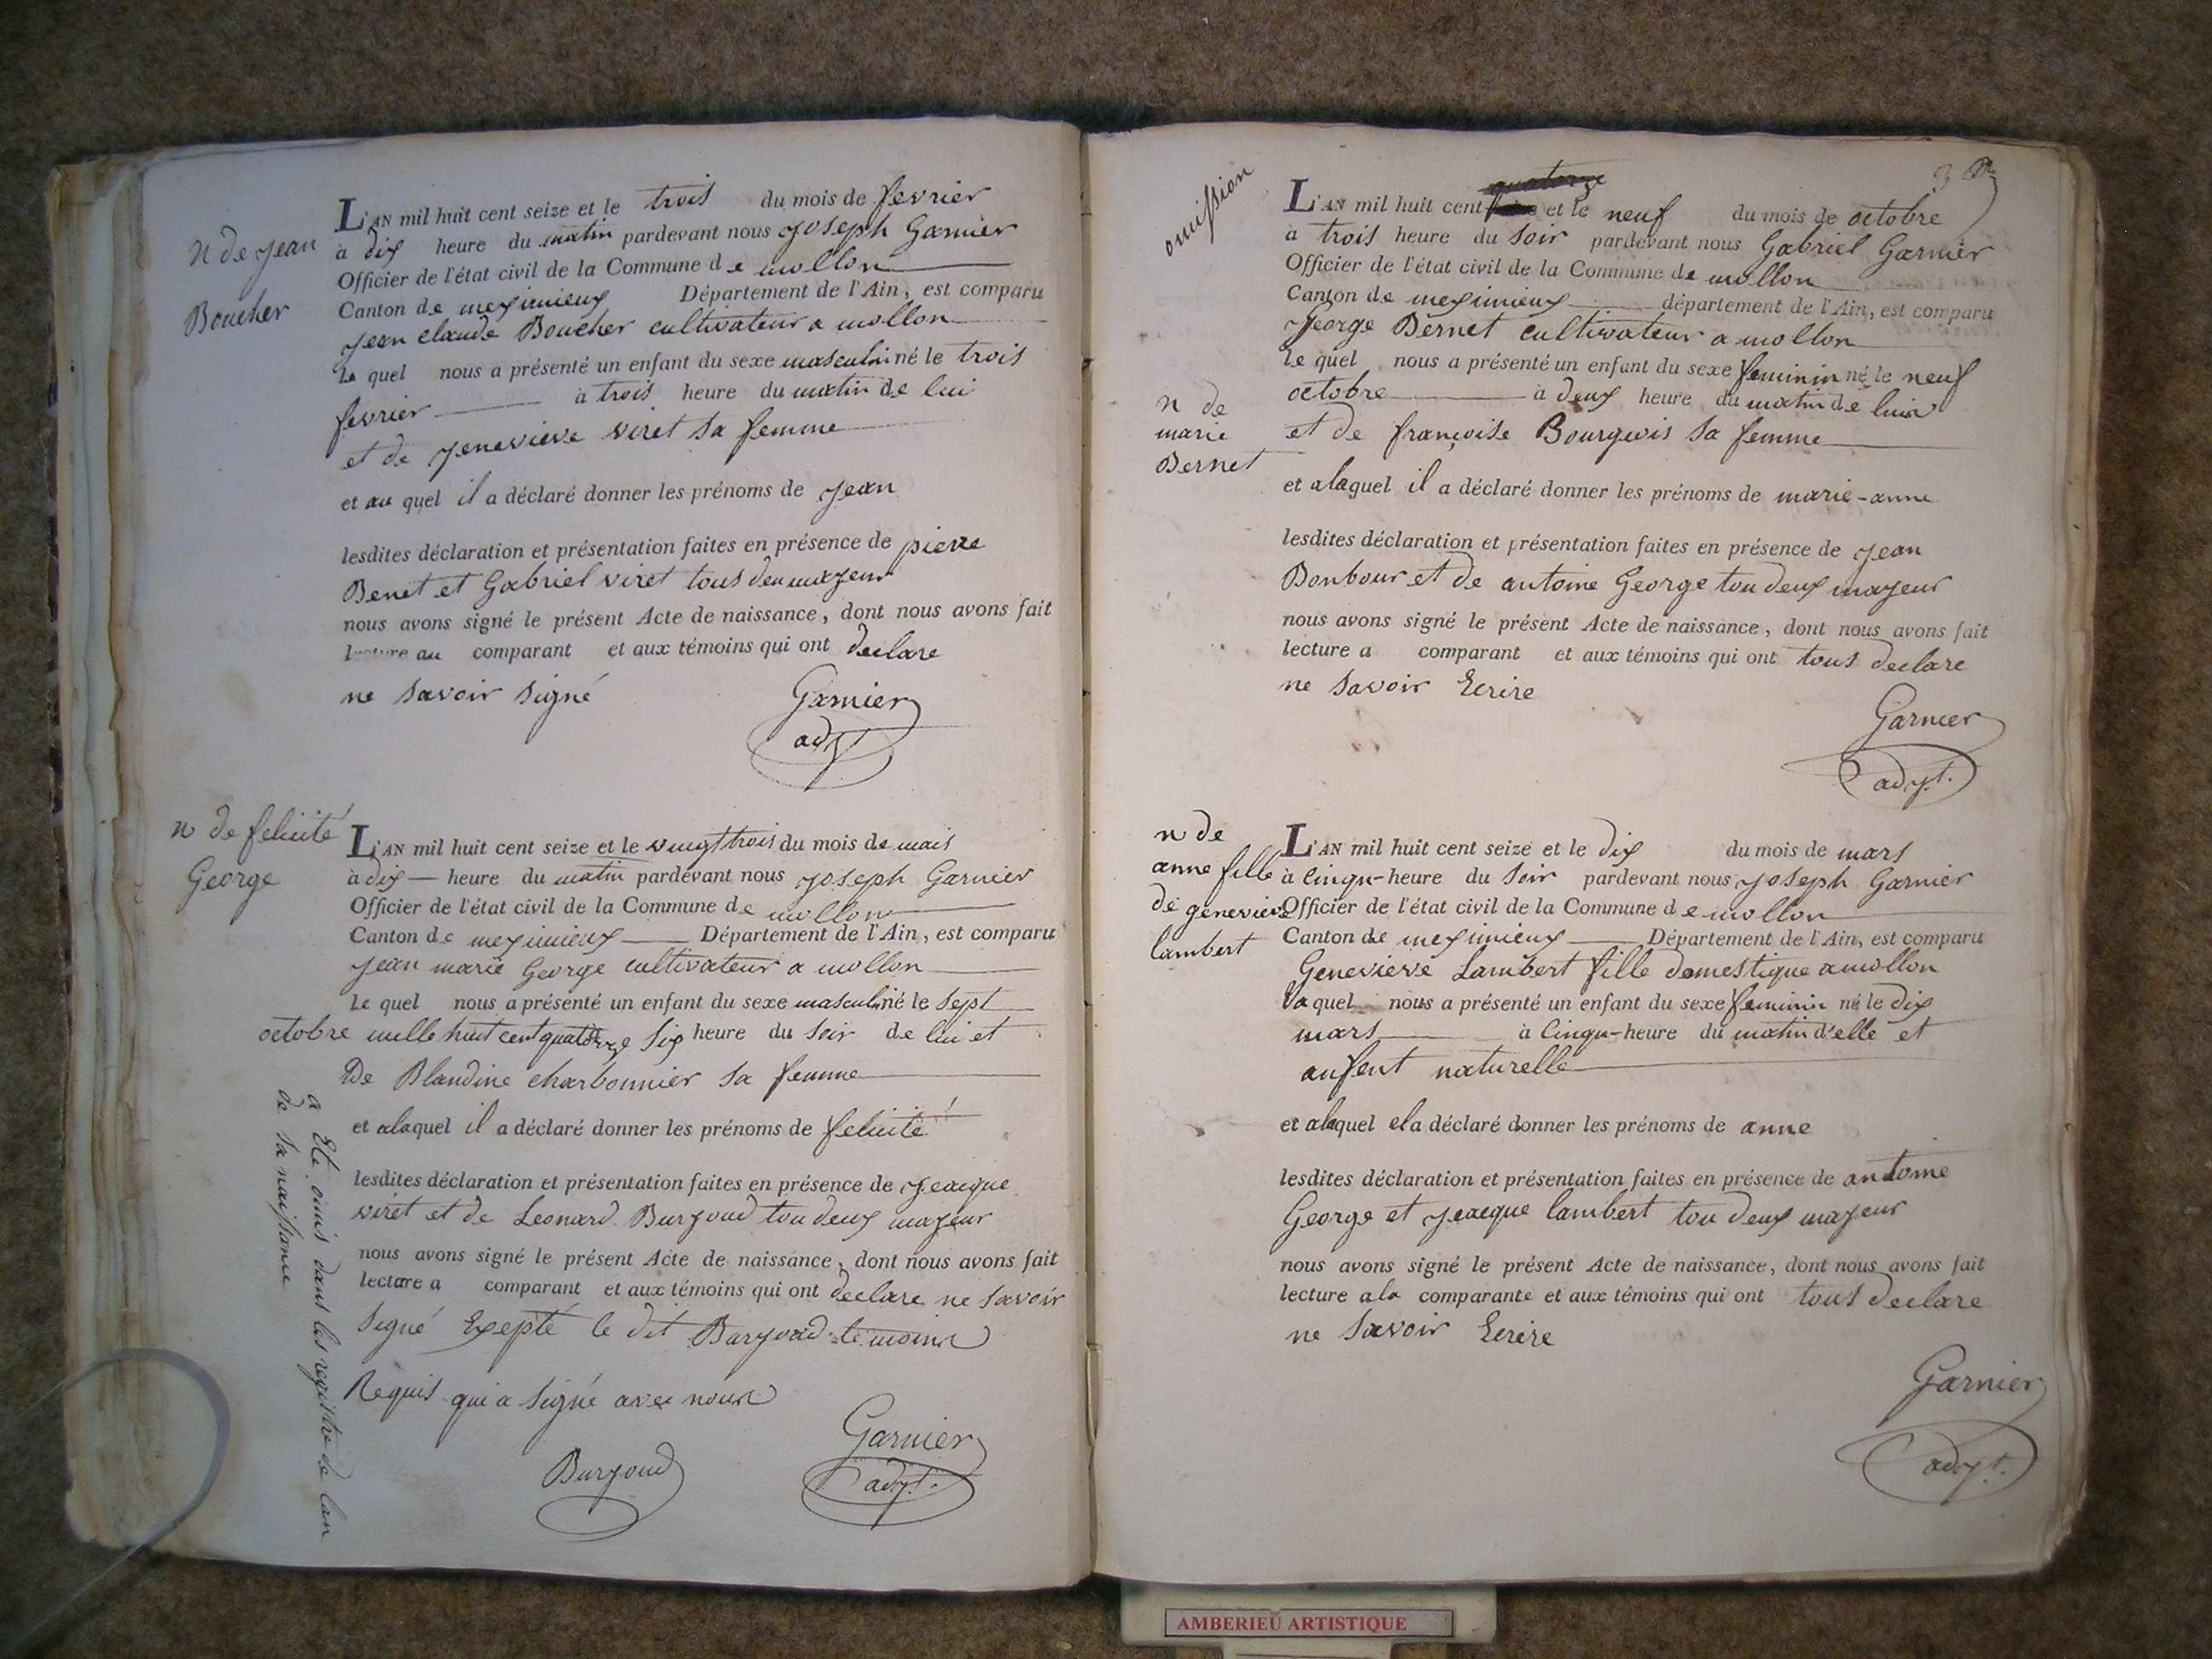 n de jean
Boucher
L'AN mil huit cent seize et le trois du mois de fevrier
à dix heure du matin pardevant nous joseph Garnier
Officier de l'état civil de la Commune de mollon
Canton de meximieux Département de l'Ain, est comparu
jean claude Boucher cultivateur a mollon
Le quel nous a présenté un enfant du sexe masculin né le trois
fevrier à trois heure du matin de lui
et de jenevieve viret sa femme
et au quel il a déclaré donner les prénoms de jean
lesdites déclaration et présentation faites en présence de pierre
Benet et Gabriel viret tous deu majeur
nous avons signé le présent Acte de naissance, dont nous avons fait
lecture au comparant et aux témoins qui ont declare
ne savoir signé
Garnier
adjt
n de felicité
George
L'AN mil huit cent seize et le vingt trois du mois de mais
à dix heure du matin pardevant nous joseph Garnier
Officier de l'état civil de la Commune de mollon
Canton de meximieux Département de l'Ain, est comparu
jean marie George cultivateur a mollon
Le quel nous a présenté un enfant du sexe masculin né le sept
octobre mille huit cent quatorze six heure du soir de lui et
De Blandine charbonnier sa femme
et alaquel il a déclaré donner les prénoms de felicité
lesdites déclaration et présentation faites en présence de jeacque
viret et de Leonard Burjoud tou deux majeur
nous avons signé le présent Acte de naissance, dont nous avons fait
lecture a comparant et aux témoins qui ont declare ne savoir
signé Exepté le dit Burjoud temoins
Requis qui a signé avec nous
Burjoud
Garnier
adjt.
a Eté omis dans les registre de lan
de sa naissance
omission
3
L'AN mil huit cent quatorze et le neuf du mois de octobre
à trois heure du soir pardevant nous Gabriel Garnier
Officier de l'état civil de la Commune de mollon
Canton de meximieux département de l'Ain, est comparu
George Bernet cultivateur a mollon
Le quel nous a présenté un enfant du sexe feminin né le neuf
octobre à deux heure du matin de lui
et de françoise Bourgeois sa femme
n de
marie
Bernet
et alaquel il a déclaré donner les prénoms de marie-anne
lesdites déclaration et présentation faites en présence de jean
Bonbour et de antoine George tou deux majeur
nous avons signé le présent Acte de naissance, dont nous avons fait
lecture a comparant et aux témoins qui ont tous declare
ne savoir Ecrire
Garnier
adjt.
n de
anne fille
de genevieve
lambert
L'AN mil huit cent seize et le dix du mois de mars
à Cinqu-heure du soir pardevant nous joseph Garnier
Officier de l'état civil de la Commune de mollon
Canton de meximieux Département de l'Ain, est comparu
Genevieve Lambert fille domestique amollon
la quel nous a présenté un enfant du sexe feminin né le dix
mars à Cinqu-heure du matin d'elle et
anfent naturelle
et alaquel el a déclaré donner les prénoms de anne
lesdites déclaration et présentation faites en présence de antoine
George et jeacque lambert tou deux majeur
nous avons signé le présent Acte de naissance, dont nous avons fait
lecture ala comparante et aux témoins qui ont tous declare
ne savoir Ecrire
Garnier
adjt.
AMBERIEU ARTISTIQUE